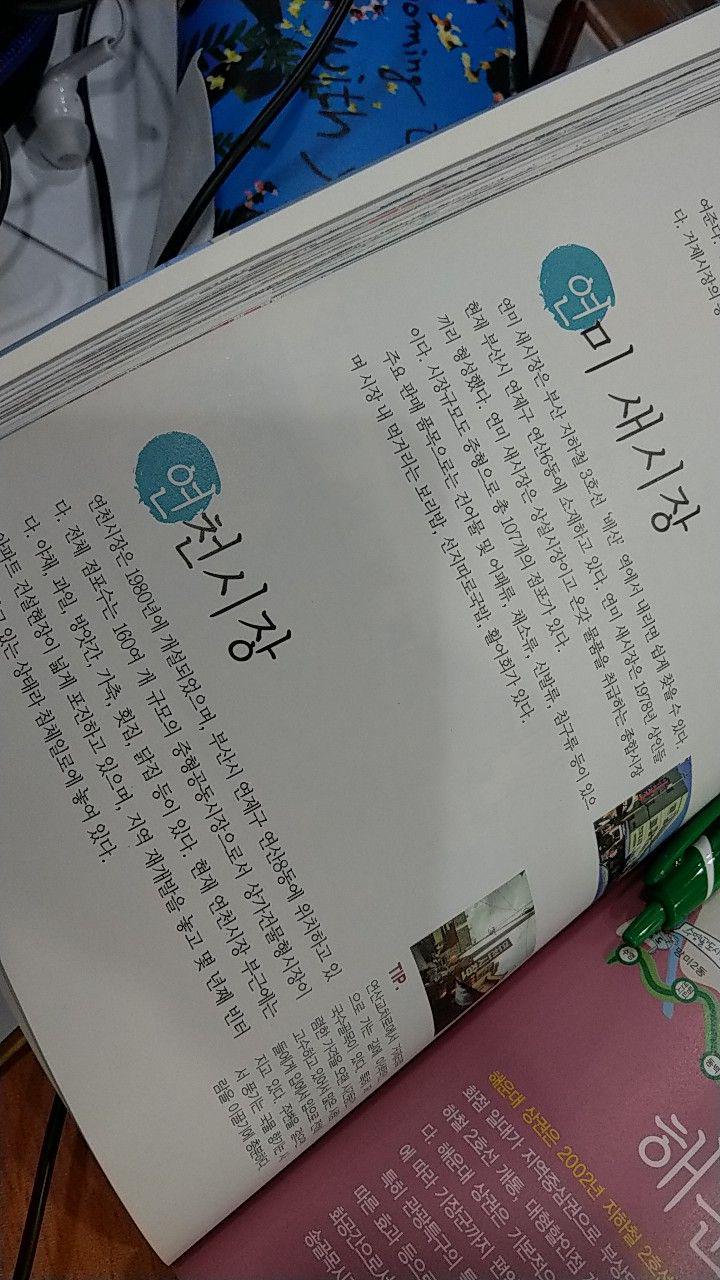 여준다.
다. 거제시장의
연미 새시장
연미 새시장은 부산 지하철 3호선 '배산' 역에서 내리면 쉽게 찾을 수 있다.
현재 부산시 연제구 연산6동에 소재하고 있다. 연미 새시장은 1978년 상인들
끼리 형성했다. 연미 새시장은 상설시장이고 온갖 물품을 취급하는 종합시장
이다. 시장규모도 중형으로 총 107개의 점포가 있다.
주요 판매 품목으로는 건어물 및 어패류, 채소류, 신발류, 침구류 등이 있으
며 시장 내 먹거리는 보리밥, 선지따로국밥, 활어회가 있다.
연천시장
연천시장은 1980년에 개설되었으며, 부산시 연제구 연산8동에 위치하고 있
다. 전체 점포수는 160여 개 규모의 중형공동시장으로서 상가건물형시장이
다. 야채, 과일, 방앗간, 가축, 횟집, 닭집 등이 있다. 현재 연천시장 부근에는
아파트 건설현장이 넓게 포진하고 있으며, 지역 재개발을 놓고 몇 년째 빈터
있는 상태라 침체일로에 놓여 있다.
TIP.
연산교차로에서
으로 가는 길에
국수골목이 있다.
렴한 가격을 오랜
고수하고 있어서 많은
들에게 입에서 입으로
지고 있다. 주변을
서 풍기는 국물 향기는
람을 이끌기에 충분하다.
해운대 상권은 2002년 지하철 2호선
화점 일대가 지역중심권으로 부산
하철 2호선 개통, 대형할인점
다. 해운대 상권은 기본적으
에 따라 기장군까지 편
특히 관광특구의
따른 효과 등으로
화공간으로서
송골목시
oming
with